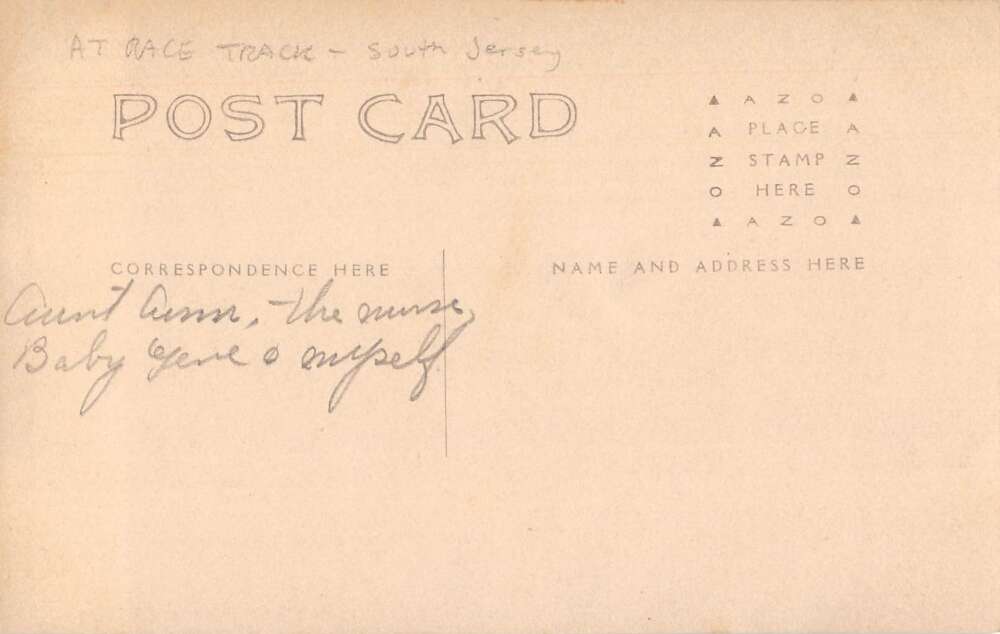 AT RACE TRACK - South Jersey
POST CARD
AZO
A PLACE A
Z STAMP Z
O HERE O
AZO
CORRESPONDENCE HERE
NAME AND ADDRESS HERE
Aunt Ann, the nurse,
Baby Gene & myself